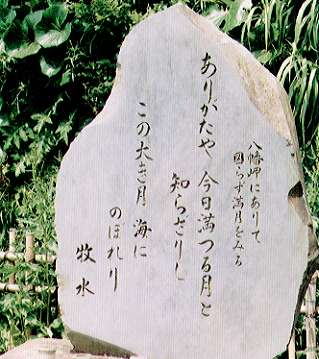 八幡岬にありて
図らず満月をみる
ありがたや今日満つる月と
知らざりし
この大き月海に
のぼれり
牧水